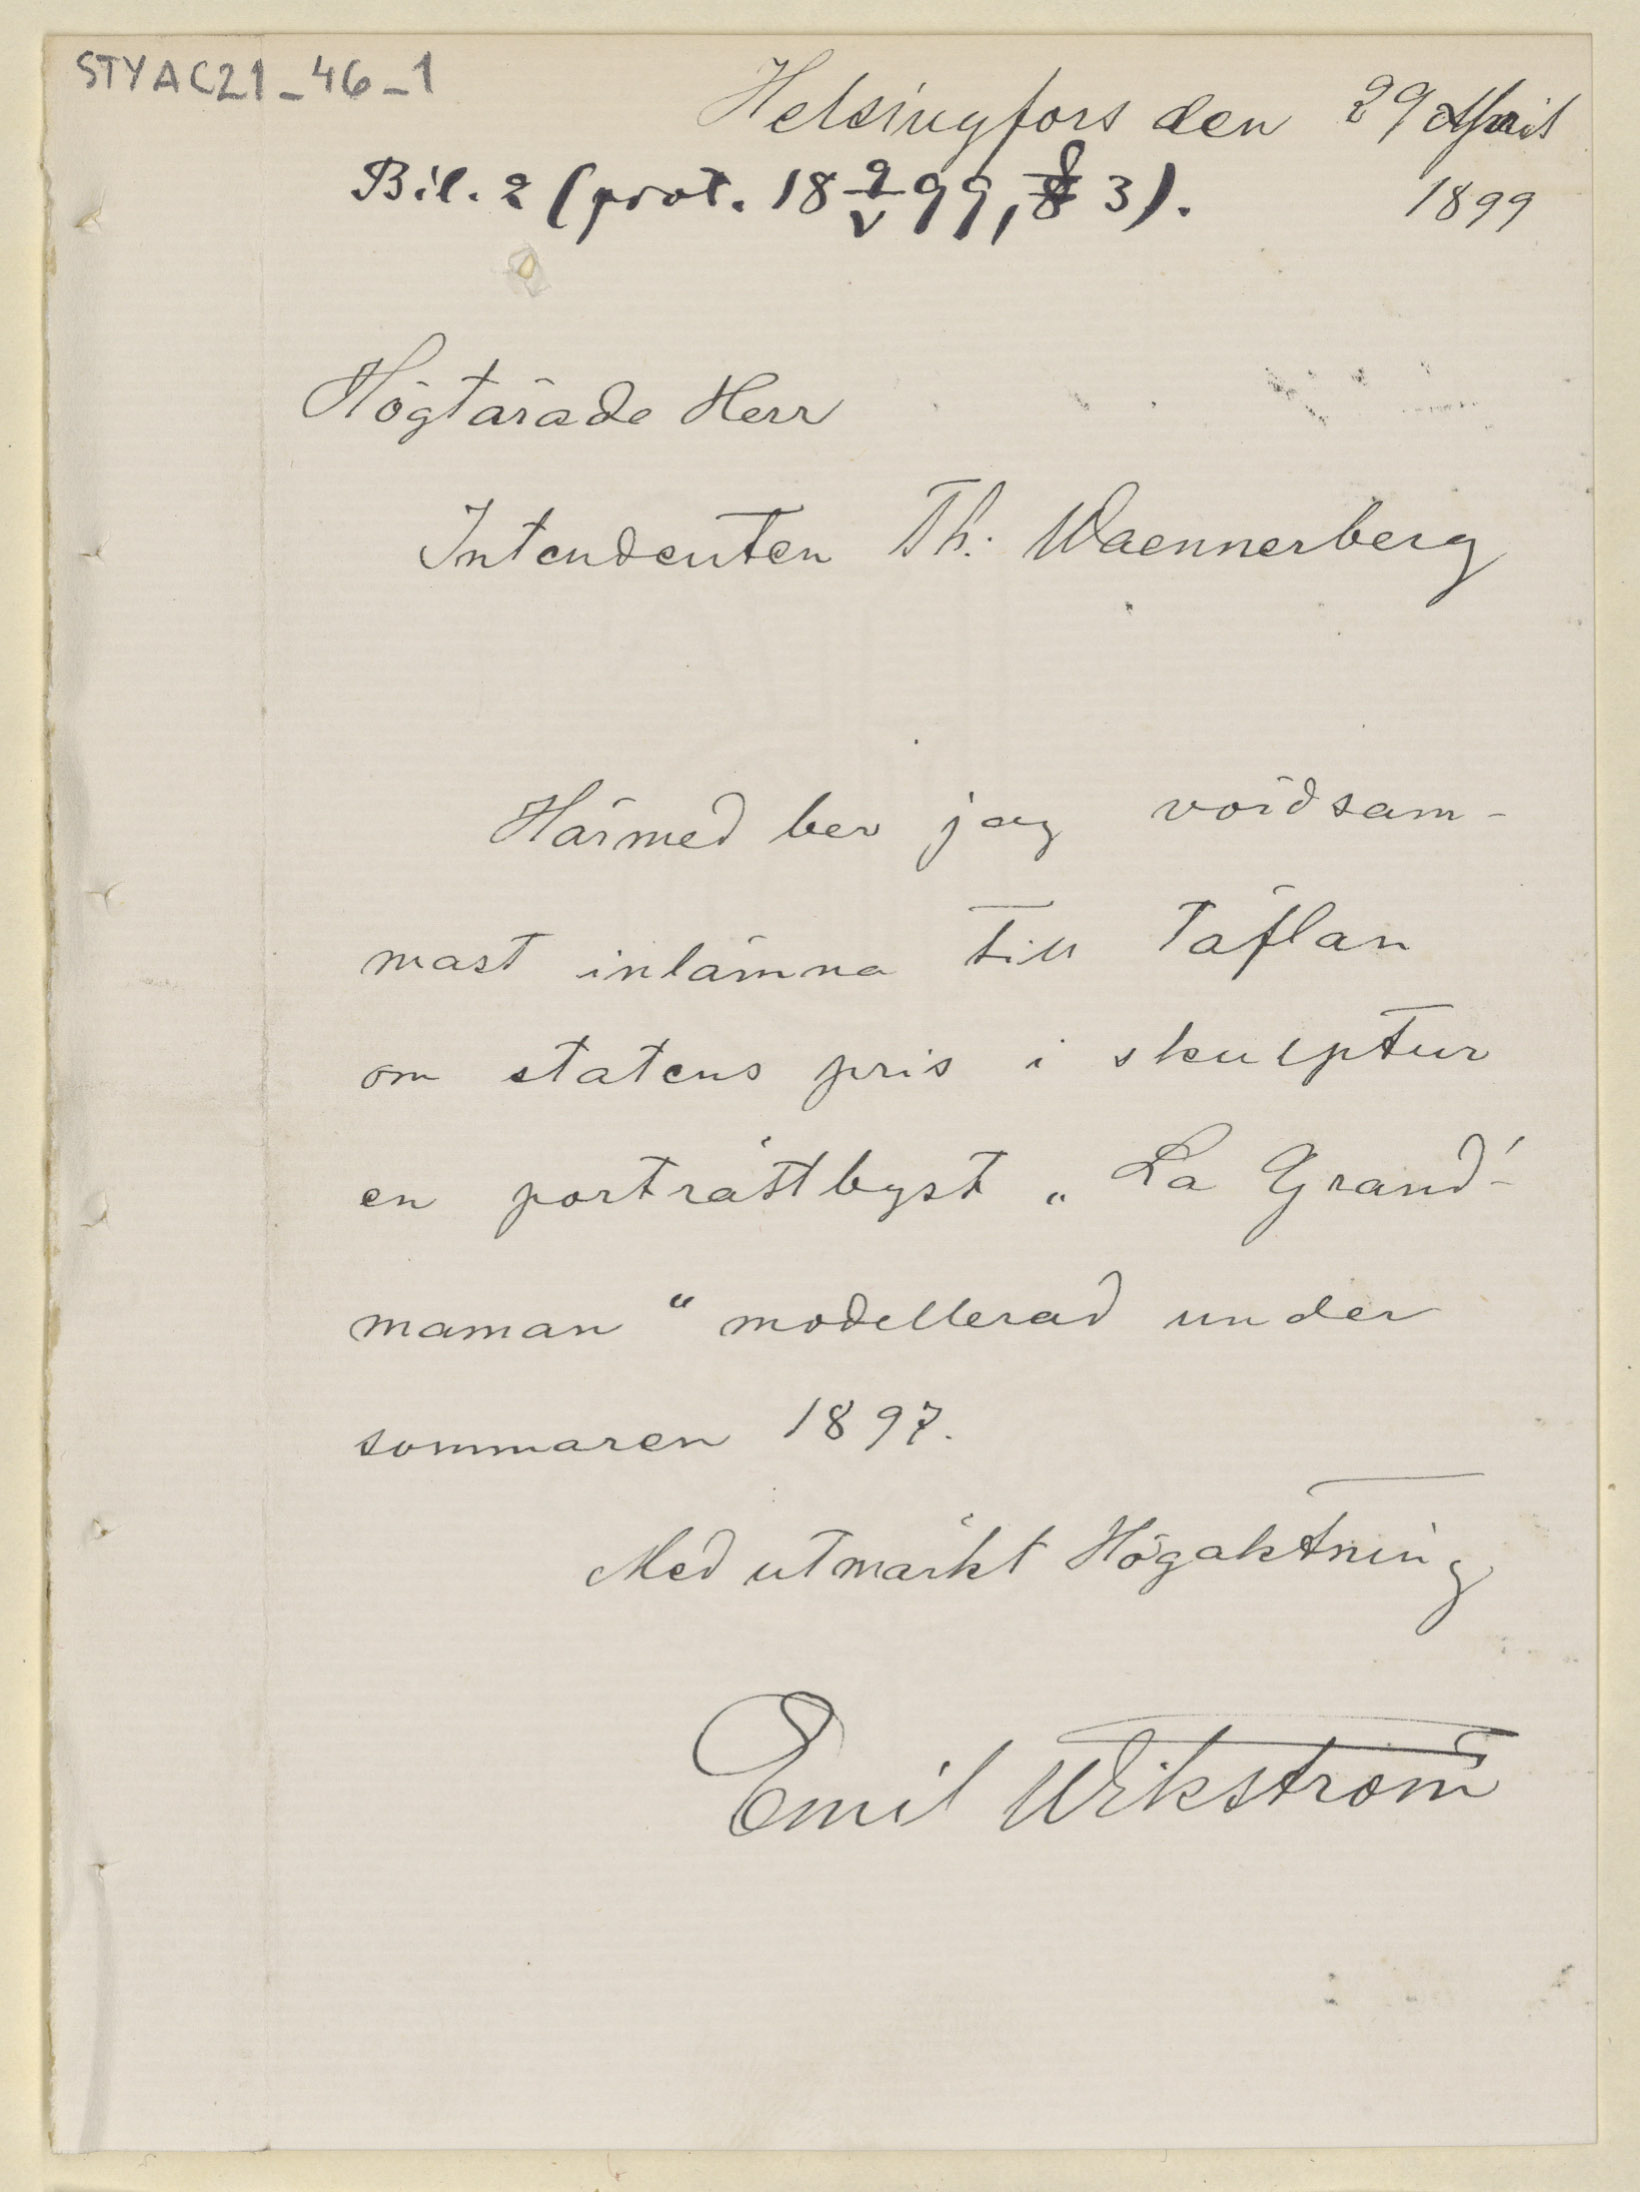 STYAC21_46_1
Helsingfors den 29 April
1899
Bil. 2 (prot. 18 2/V 99, § 3).
Högtärade Herr
Intendenten Th. Waennerberg
Härmed ber jag vördsam-
mast inlämna till Täflan
om statens pris i skulptur
en porträttbyst „La Grand'-
maman“ modellerad under
sommaren 1897.
Med utmärkt Högaktning
Emil Wikström